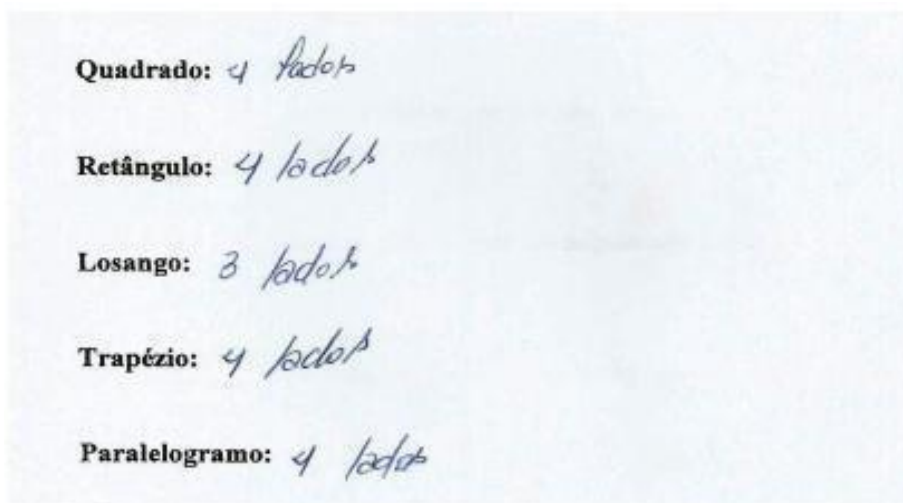 Quadrado: 4 lados
Retângulo: 4 lados
Losango: 3 lados
Trapézio: 4 lados
Paralelogramo: 4 lados